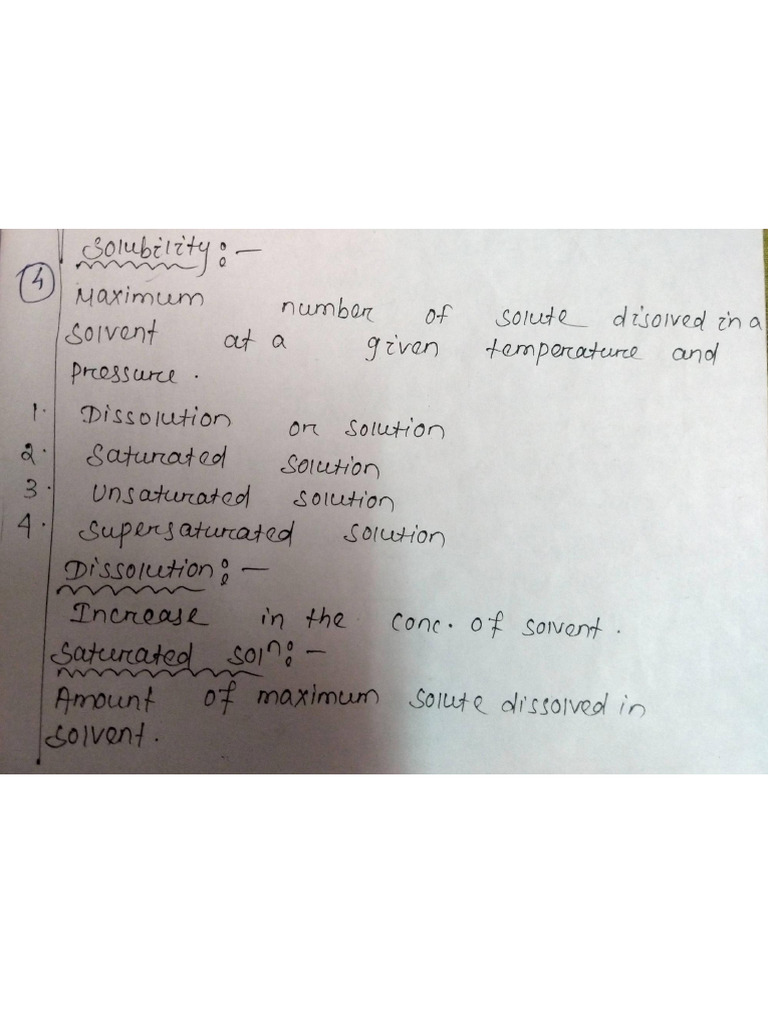 Solubility:-
4
Maximum number of solute disolved in a
solvent at a given temperature and
pressure.
1. Dissolution or solution
2. Saturated solution
3. Unsaturated solution
4. Supersaturated solution
Dissolution:-
Increase in the conc. of solvent.
Saturated solⁿ:-
Amount of maximum solute dissolved in
solvent.